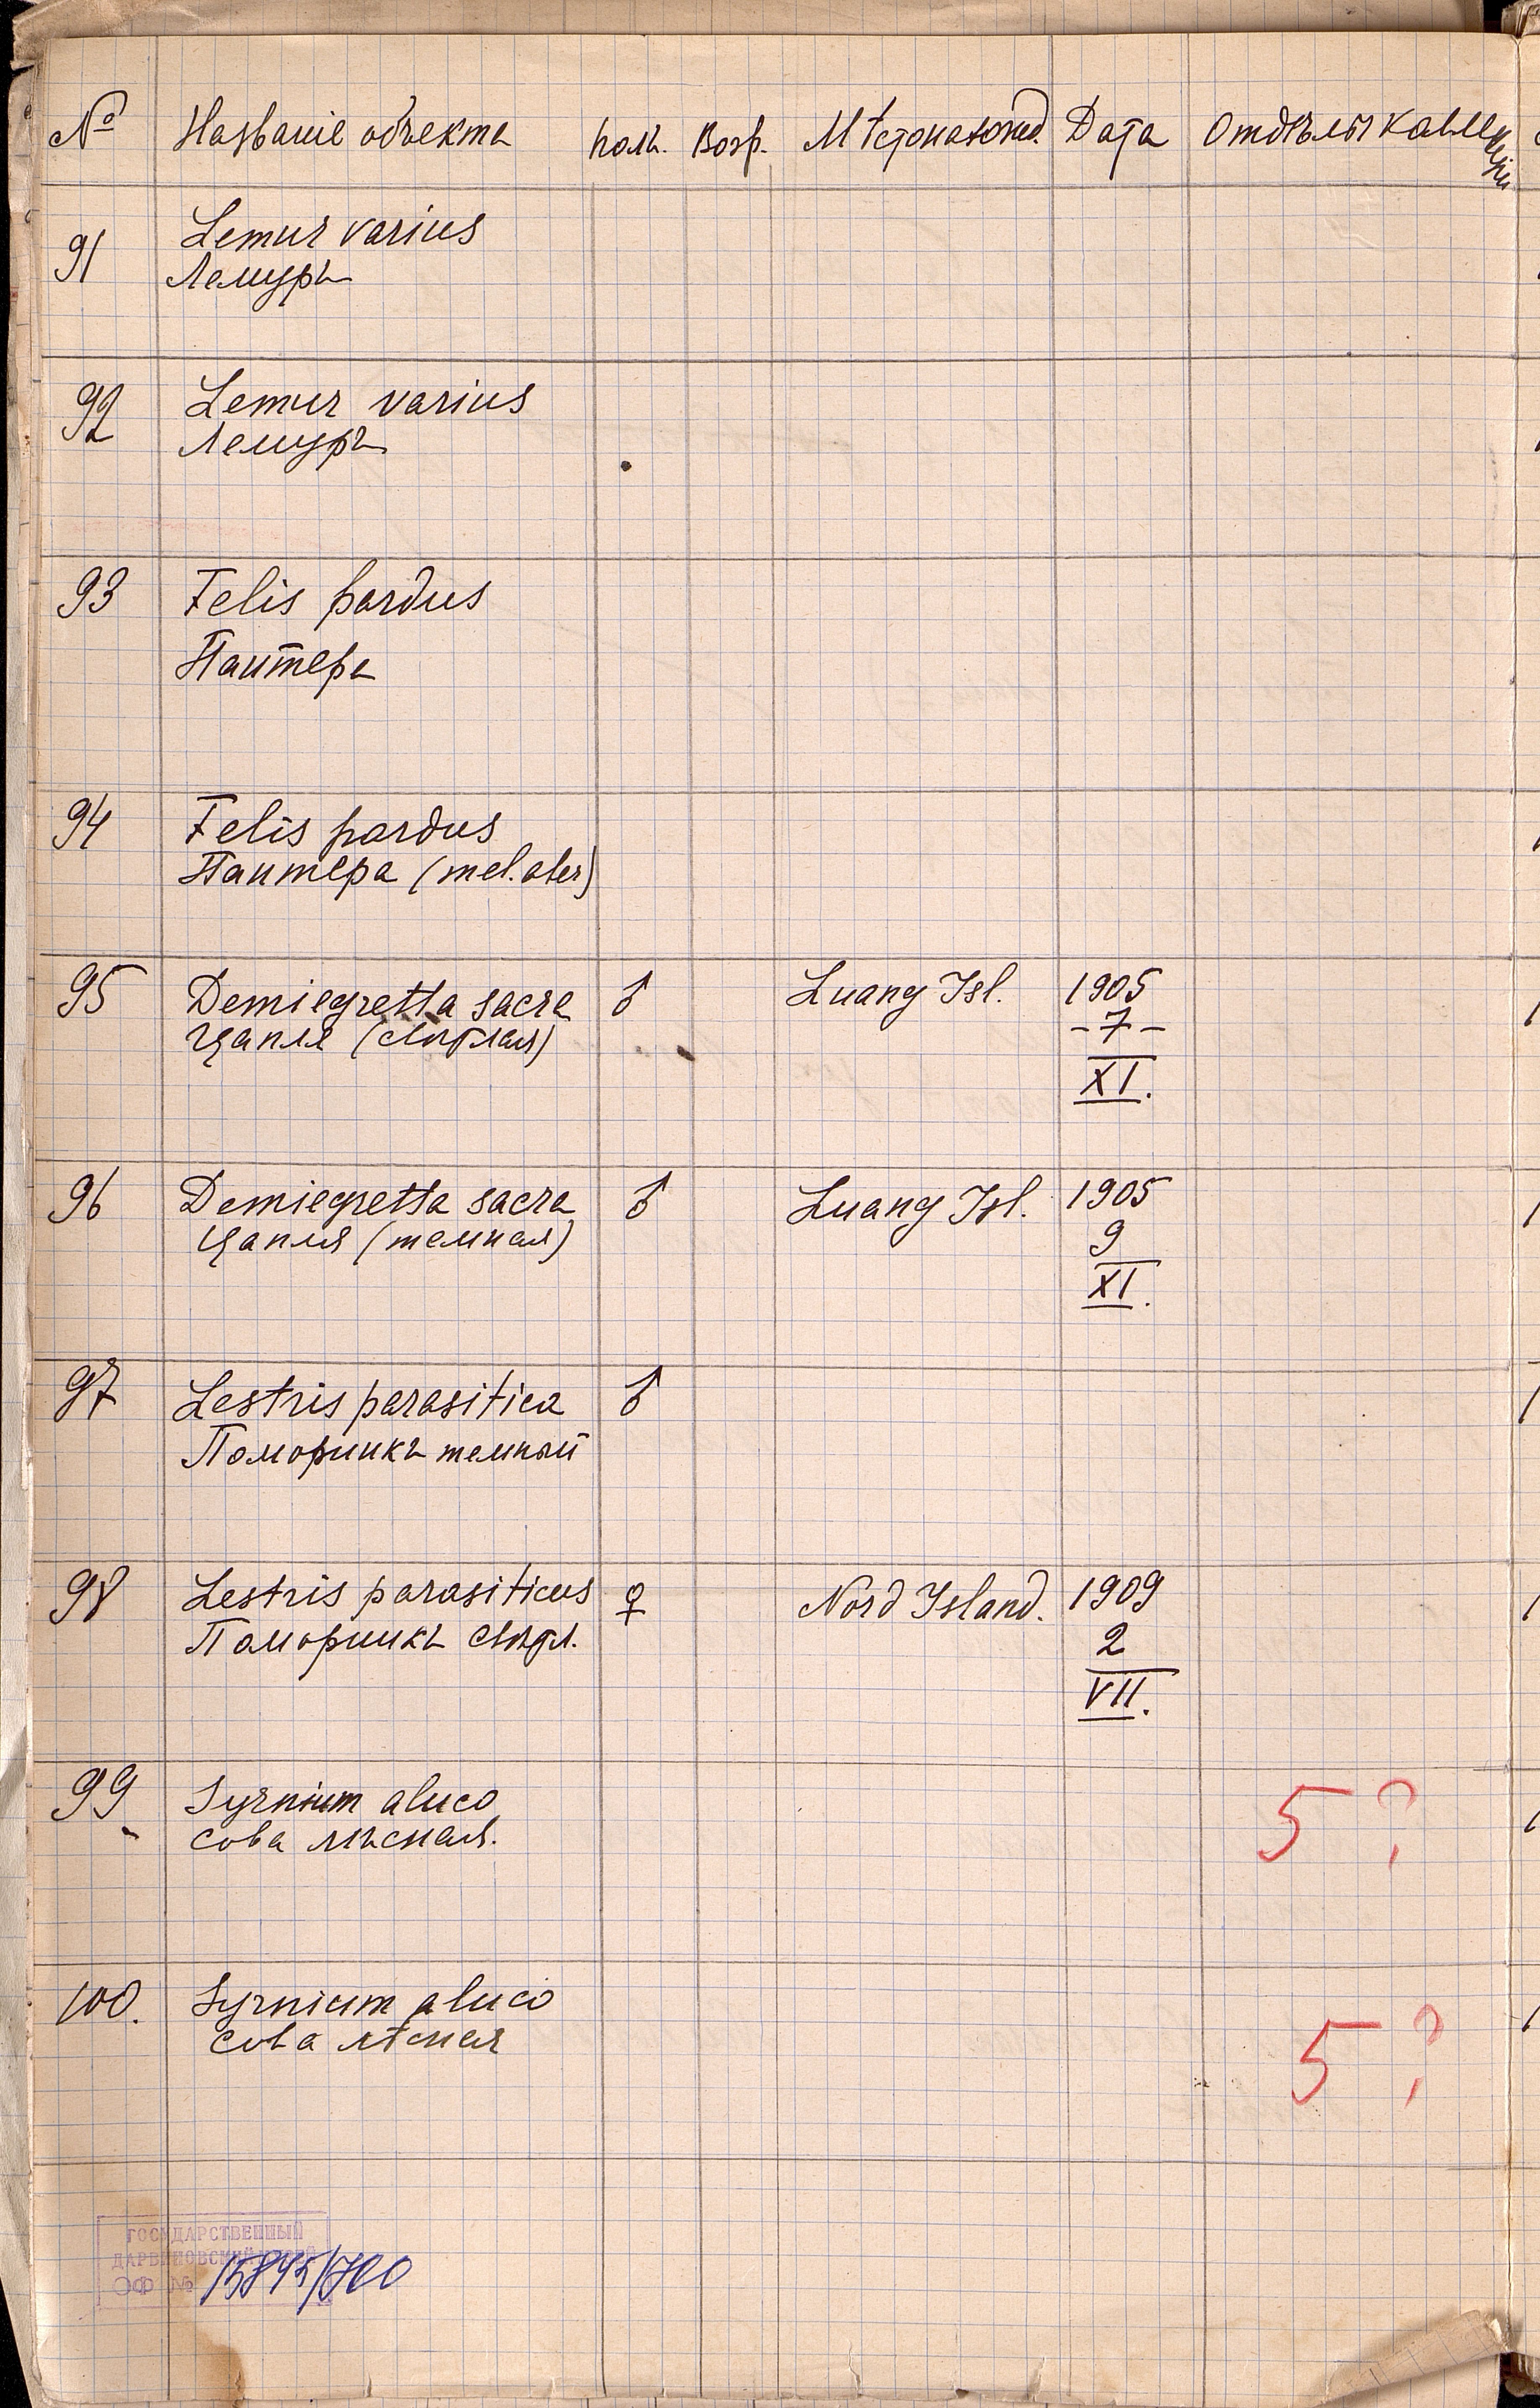 № Названіе объекта полъ. Возр. Мѣстонахожд. Дата Отдѣлы коллекціи
91 Lemur varius
Лемуръ
92 Lemur varius
Лемуръ
93 Felis pardus
Пантера
94 Felis pardus
Пантера (mel. aber)
95 Demiegretta sacra ♂ Luang Isl. 1905
Цапля (свѣтлая) - 7 -
XI.
96 Demiegretta sacra ♂ Luang Isl. 1905
Цапля (темная) 9
XI.
97 Lestris parasitica ♂
Поморникъ темный
98 Lestris parasiticus ♀ Nord Island. 1909
Поморникъ свѣтл. 2
VII.
99 Syrnium aluco
сова лѣсная. 5 ?
100. Syrnium aluco
сова лѣсная 5 ?
ГОСУДАРСТВЕННЫЙ
ДАРВИНОВСКИЙ МУЗЕЙ
ОФ №